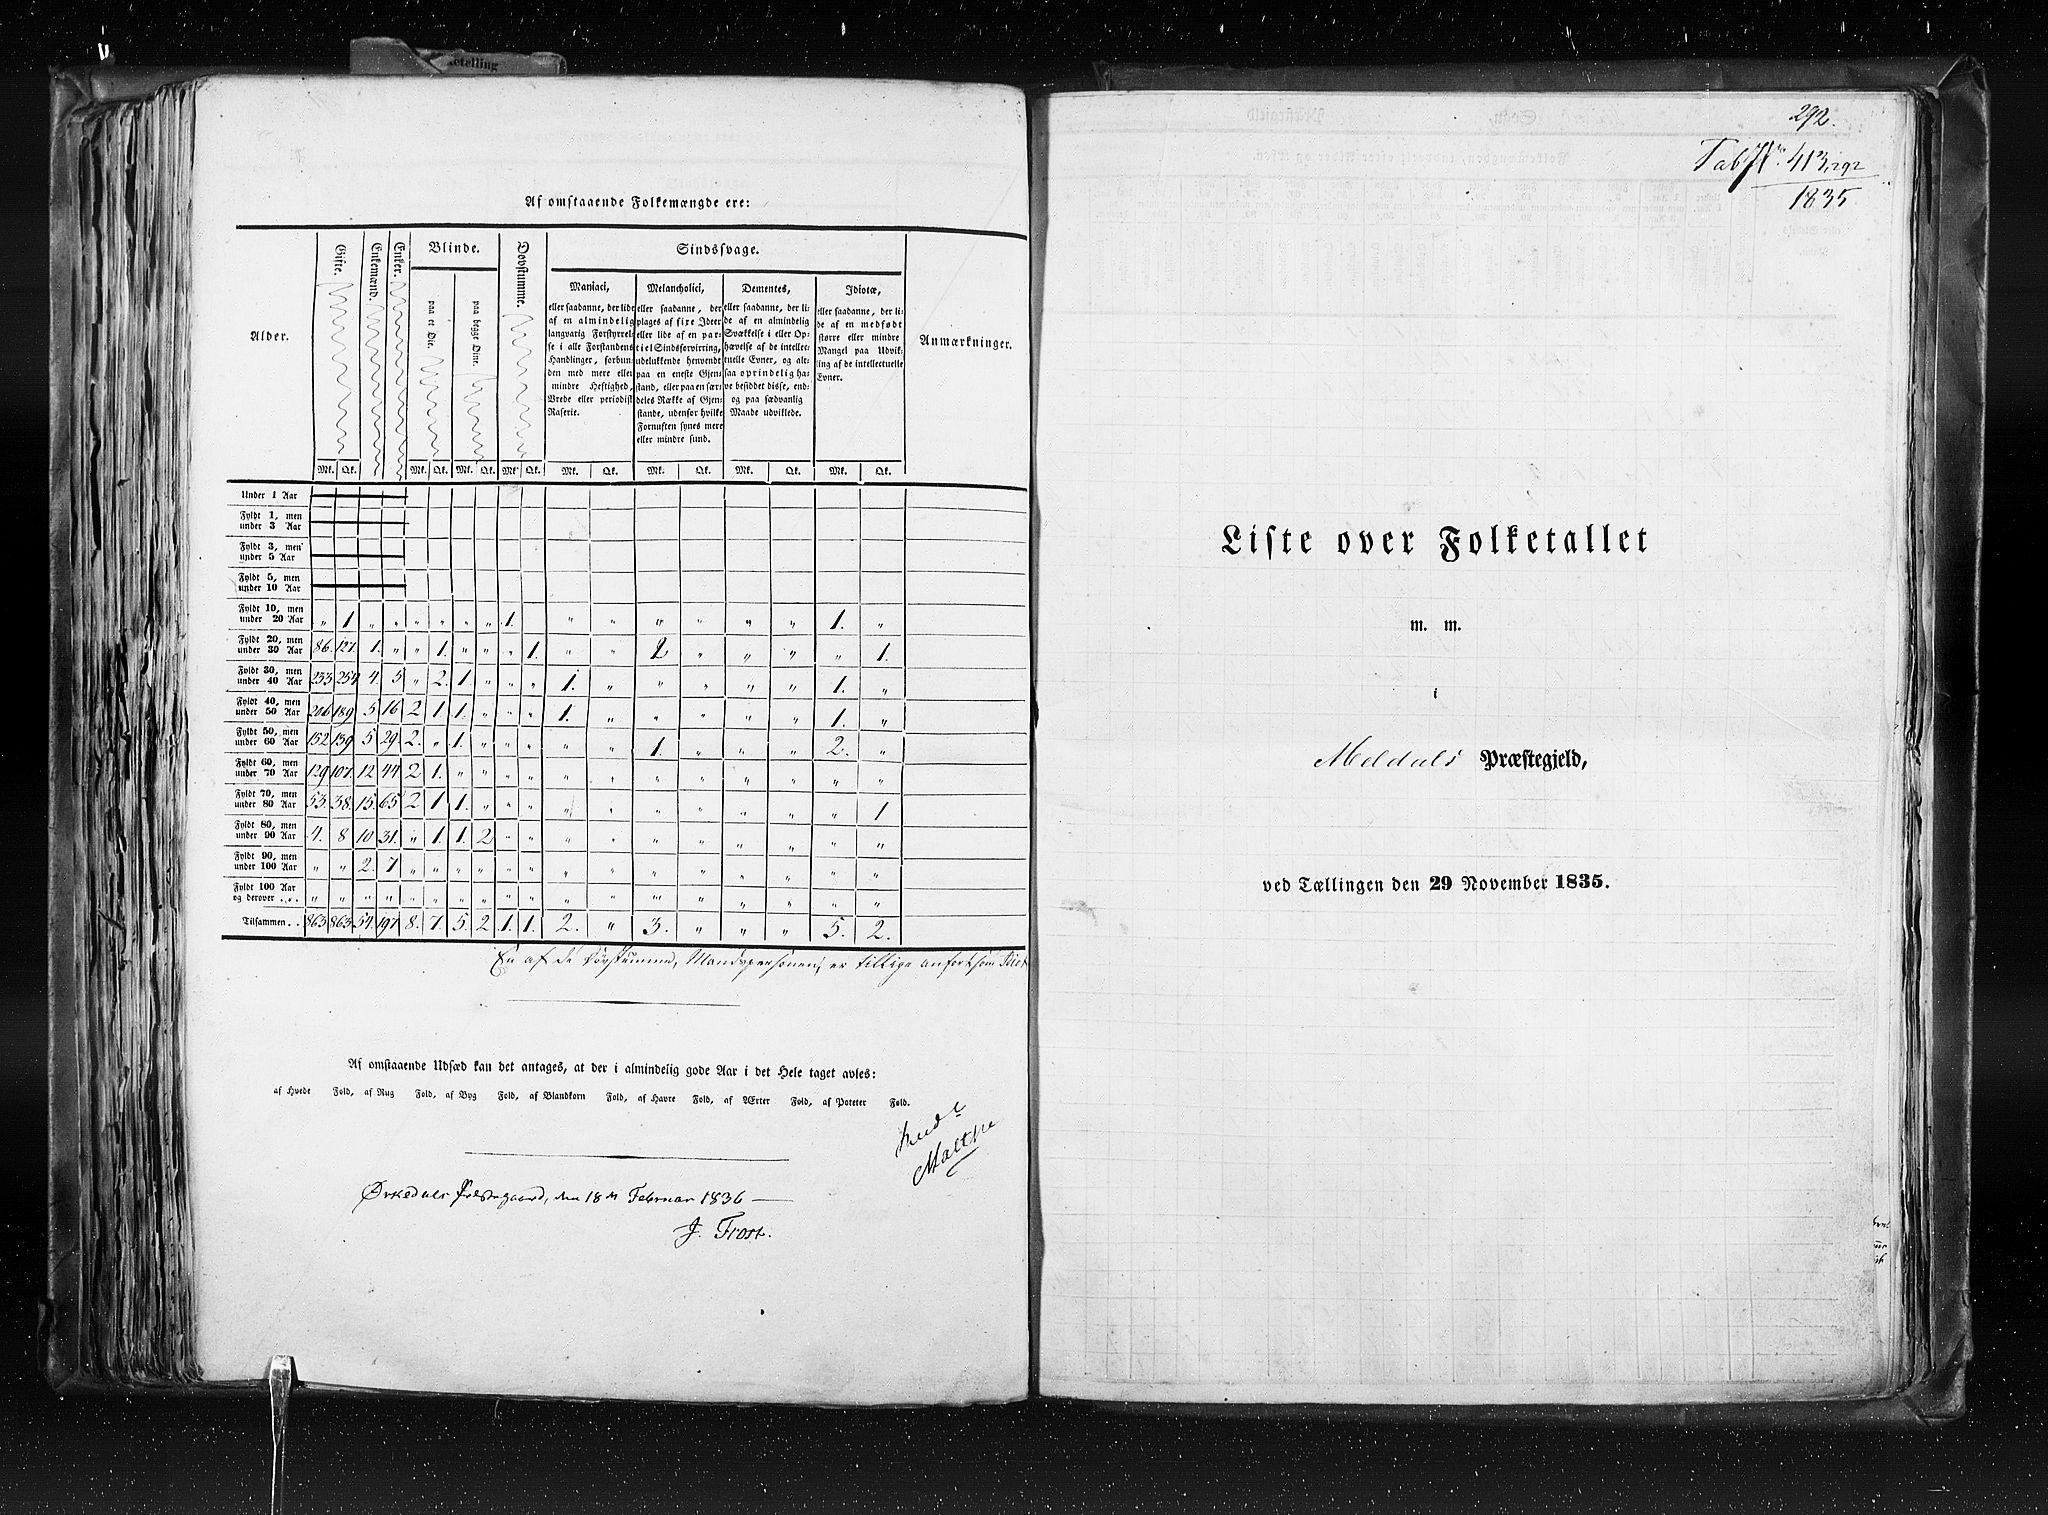 Af omstaaende Folkemængde ere:
Alder.
Gifte.
Enkemænd.
Enker.
Blinde.
paa et Øie.
paa begge Øine.
Døvstumme.
Sindssvage.
Maniaci,
eller saadanne, der lide
af en almindelig
langvarig Forstyrrel-
se i alle Forstandens
Handlinger, forbun-
den med mere eller
mindre Heftighed,
Vrede eller periodisk
Raserie.
Melancholici,
eller saadanne, der
plages af fixe Ideer
eller lide af en par-
tiel Sindsforvirring,
udelukkende henvende
paa en eneste Gjen-
stand, eller paa en sær-
deles Række af Gjen-
stande, udenfor hvilke
Fornuften synes mere
eller mindre sund.
Dementes,
eller saadanne, der li-
de af en almindelig
Svækkelse i eller Op-
hævelse af de intellec-
tuelle Evner, og alt-
saa oprindelig ha-
ve besiddet disse, end-
og paa sædvanlig
Maade udviklede.
Idioteæ,
eller saadanne, der li-
de af en medfødt
større eller mindre
Mangel paa Udvik-
ling af de intellectuelle
Evner.
Anmærkninger.
Mk. Qk. Mk. Qk. Mk. Qk. Mk. Qk. Mk. Qk. Mk. Qk. Mk. Qk. Mk. Qk.
Under 1 Aar
Fyldt 1, men
under 3 Aar
Fyldt 3, men
under 5 Aar
Fyldt 5, men
under 10 Aar
Fyldt 10, men
under 20 Aar „ 1 „ „ „ „ „ „ 1. „ „ „ „ „ „ 1. „
Fyldt 20, men
under 30 Aar 86. 127. 1. „ „ 1. „ „ „ 1. „ „ 2 „ „ „ „ 1.
Fyldt 30, men
under 40 Aar 233 254 4 5 „ 2. 1. „ „ „ 1. „ „ „ „ „ 1. „
Fyldt 40, men
under 50 Aar 206 189 5 16 2 1. 1. „ „ „ 1. „ „ „ „ „ 1. „
Fyldt 50, men
under 60 Aar 152 139 5 29. 2. „ 1. „ „ „ „ „ 1. „ „ „ 2. „
Fyldt 60, men
under 70 Aar 129 107. 12 44 2 1. „ „ „ „ „ „ „ „ „ „ „ „
Fyldt 70, men
under 80 Aar 53. 38. 15. 65 2 1 1. „ „ „ „ „ „ „ „ „ „ 1
Fyldt 80, men
under 90 Aar 4. 8 10 31. „ 1. 1. 2 „ „ „ „ „ „ „ „ „ „
Fyldt 90, men
under 100 Aar „ „ 2. 7 „ „ „ „ „ „ „ „ „ „ „ „ „ „
Fyldt 100 Aar
og derover . . . „ „ „ „ „ „ „ „ „ „ „ „ „ „ „ „ „ „
Tilsammen . . 863 863 54. 197 8. 7. 5. 2 1. 1. 2. „ 3. „ „ „ 5. 2.
En af de Døvstumme, Mandspersonen, er tillige anført som Idiot
Af omstaaende Udsæd kan det antages, at der i almindelig gode Aar i det Hele taget avles:
af Hvede Fold, af Rug Fold, af Byg Fold, af Blandkorn Fold, af Havre Fold, af Ærter Fold, af Poteter Fold.
Ørkedals Præstegaard, den 18de Februar 1836
J. Frost.
292.
Tab No. 413, 292
1835
Liste over Folketallet
m. m.
i
Meldals Præstegjeld,
ved Tællingen den 29 November 1835.